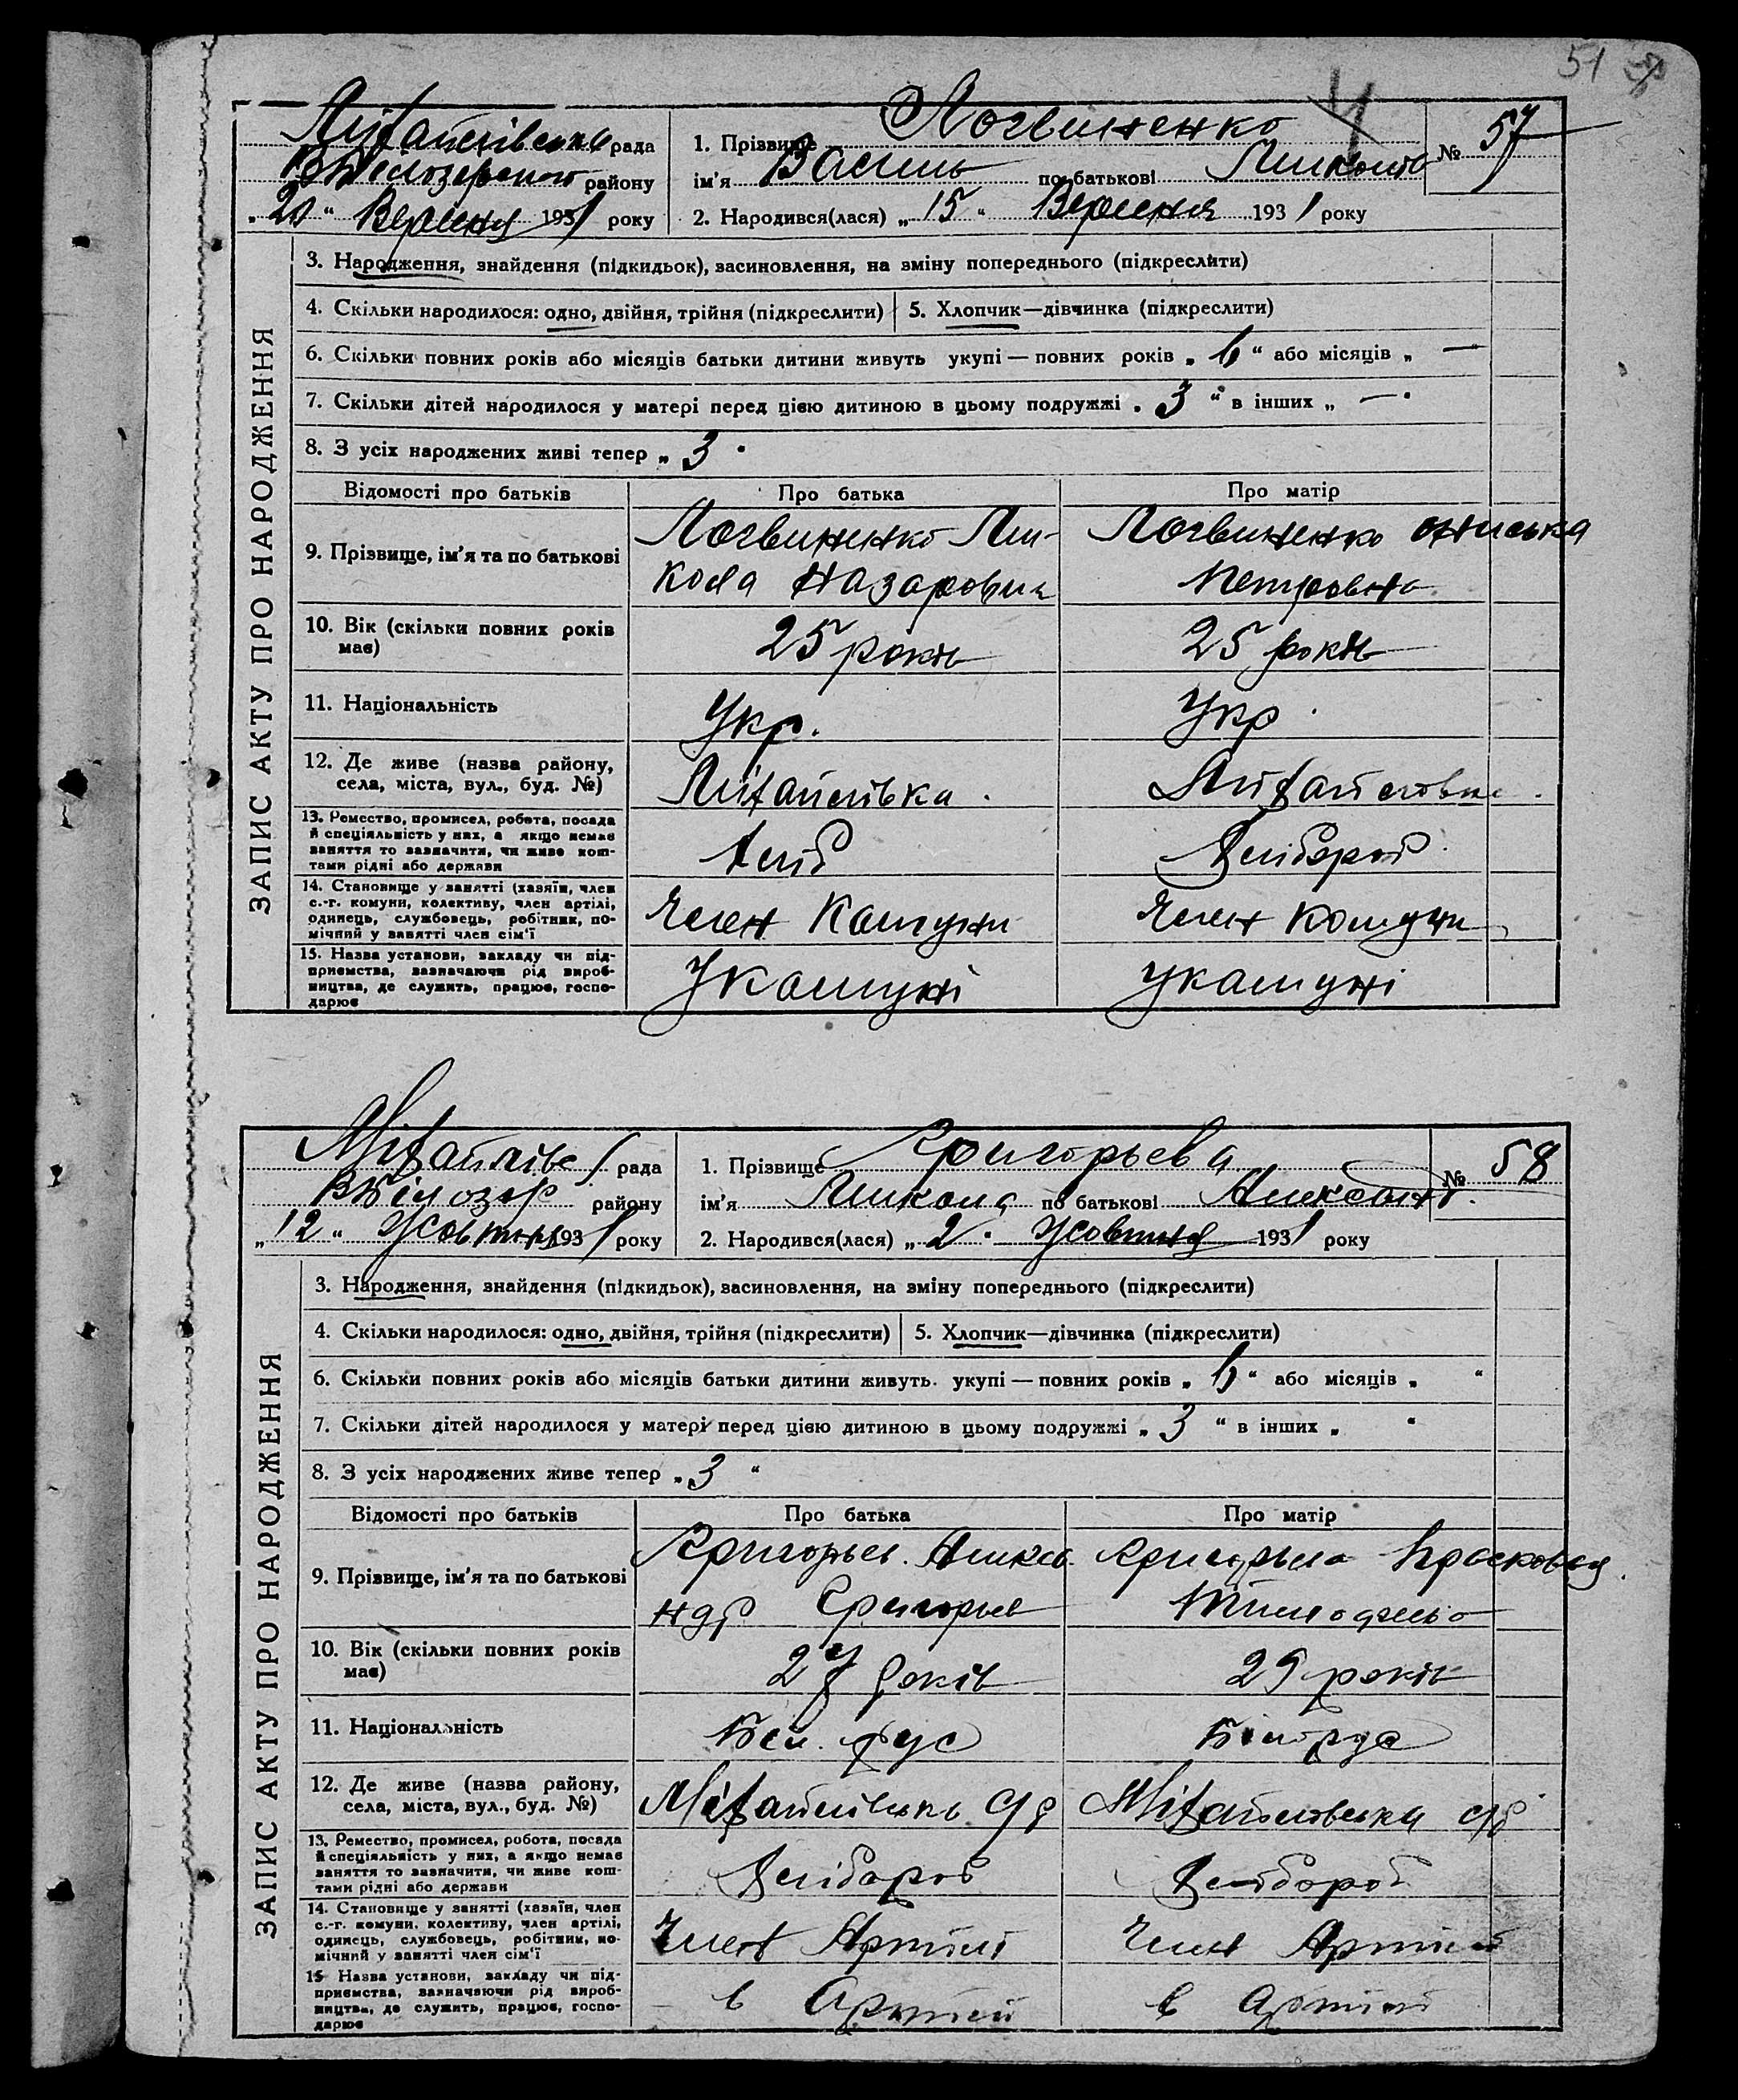 51
Михайлівська рада
В Білозерського району
„ 20 “ Вересня 1931 року
1. Прізвище Логвиненко
ім'я Василь по батькові Микола
№ 57
2. Народився(лася) „ 15 “ Вересня 1931 року
ЗАПИС АКТУ ПРО НАРОДЖЕННЯ
3. Народження, знайдення (підкидьок), васиновлення, на зміну попереднього (підкреслити)
4. Скільки народилося: одно, двійня, трійня (підкреслити) 5. Хлопчик—дівчинка (підкреслити)
6. Скільки повних років або місяців батьки дитини живуть укупі — повних років „ 6 “ або місяців „ —
7. Скільки дітей народилося у матері перед цією дитиною в цьому подружжі „ 3 “ в інших „ —
8. З усіх народжених живі тепер „ 3
Відомості про батьків Про батька Про матір
9. Прізвище, ім'я та по батькові
Логвиненко Ми-
кола Назарович
Логвиненко
Петровна
10. Вік (скільки повних років має)
25 років
25 років
11. Національність
Укр.
Укр.
12. Де живе (назва району, села, міста, вул., буд. №)
Михайлівка
13. Ремество, промисел, робота, посада й спеціяльність у них, а якщо немає заняття то зазначити, чи живе коштами рідні або держави
Хліб
Хлібороб
14. Становище у занятті (хазяїн, член с.-г. комуни, колективу, член артілі, одинець, службовець, робітник, помічний у занятті член сім'ї
Член Комуни
Член Комуни
15. Назва установи, закладу чи підприємства, зазначаючи рід виробництва, де служить, працює, господарює
У комуні
у комуні
Михайлівс рада
В Білозер району
„ 12 “ Жовтня 1931 року
1. Прізвище Григорьева
ім'я Микола по батькові Александ
№ 58
2. Народився(лася) „ 2 “ Жовтня 1931 року
ЗАПИС АКТУ ПРО НАРОДЖЕННЯ
3. Народження, знайдення (підкидьок), васиновлення, на зміну попереднього (підкреслити)
4. Скільки народилося: одно, двійня, трійня (підкреслити) 5. Хлопчик—дівчинка (підкреслити)
6. Скільки повних років або місяців батьки дитини живуть укупі — повних років „ 6 “ або місяців „ “
7. Скільки дітей народилося у матері перед цією дитиною в цьому подружжі „ 3 “ в інших „ “
8. З усіх народжених живе тепер „ 3 “
Відомості про батьків Про батька Про матір
9. Прізвище, ім'я та по батькові
Григорьев Алекса
ндр Григорьев
Григорьева
10. Вік (скільки повних років має)
27 років
29 років
11. Національність
Біл. рус
Білорус
12. Де живе (назва району, села, міста, вул., буд. №)
13. Ремество, промисел, робота, посада й спеціяльність у них, а якщо немає заняття то зазначити, чи живе коштами рідні або держави
Хлібороб
Хлібороб
14. Становище у занятті (хазяїн, член с.-г. комуни, колективу, член артілі, одинець, службовець, робітник, помічний у занятті член сім'ї
Член Артілі
Член Артілі
15 Назва установи, закладу чи підприємства, зазначаючи рід виробництва, де служить, працює, господарює
в Артілі
в Артілі